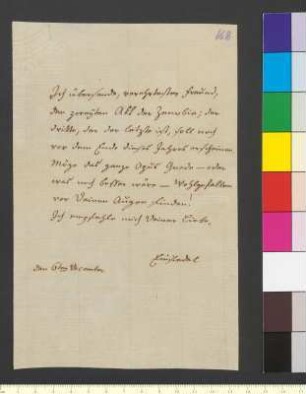 168
Ich übersende, verehrtester Freund,
den zweyten Akt der Zenobia; der
dritte, der der letzte ist, soll noch
vor dem Ende dieses Jahres erscheinen
Möge das ganze Opus Gnade – oder
was noch besser wäre – Wohlgefallen
vor Deinen Augen finden!
Ich empfehle mich Deiner Liebe.
Einsiedel
den 6ten December